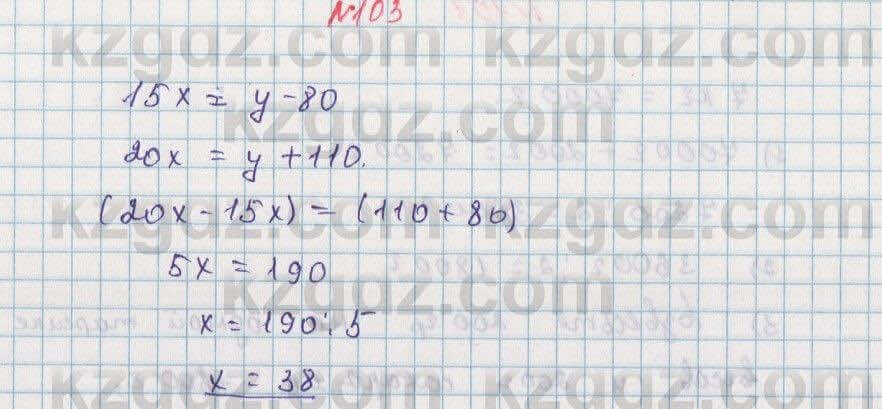 №103
kzgdz.com kzgdz.com
15x = y - 80
kzgdz.com
20x = y + 110.
(20x - 15x) = (110 + 80)
kzgdz.com kzgdz.com
5x = 190
kzgdz.com
x = 190 : 5
kzgdz.com kzgdz.com
x = 38